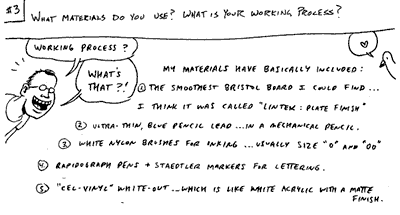 #3 WHAT MATERIALS DO YOU USE? WHAT IS YOUR WORKING PROCESS?
WORKING PROCESS?
WHAT'S THAT?!
MY MATERIALS HAVE BASICALLY INCLUDED:
① THE SMOOTHEST BRISTOL BOARD I COULD FIND...
I THINK IT WAS CALLED "LINTEK: PLATE FINISH"
② ULTRA-THIN, BLUE PENCIL LEAD...IN A MECHANICAL PENCIL.
③ WHITE NYLON BRUSHES FOR INKING...USUALLY SIZE "0" AND "00"
④ RAPIDOGRAPH PENS + STAEDTLER MARKERS FOR LETTERING.
⑤ "CEL-VINYL" WHITE-OUT...WHICH IS LIKE WHITE ACRYLIC WITH A MATTE
FINISH.